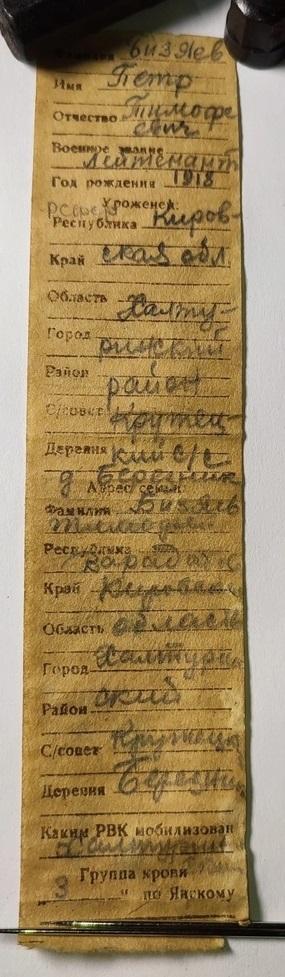 Фамилия Бизяев
Имя Петр
Отчество Тимофе
евич
Военное звание
Лейтенант
Год рождения 1918
Уроженец:
РСФСР
Республика Киров-
Край ская обл
Область Халту-
Город ринский
Район район
С/совет Крутец-
Деревня кий с/с
д Березник
Адрес семьи:
Фамилия Бизяев
Республика
Край Кировская
Область область
Город Халтурин
Район ский
С/совет Крутец
Деревня Березник
Каким РВК мобилизован
Халтурин
Группа крови
3 " по Янскому